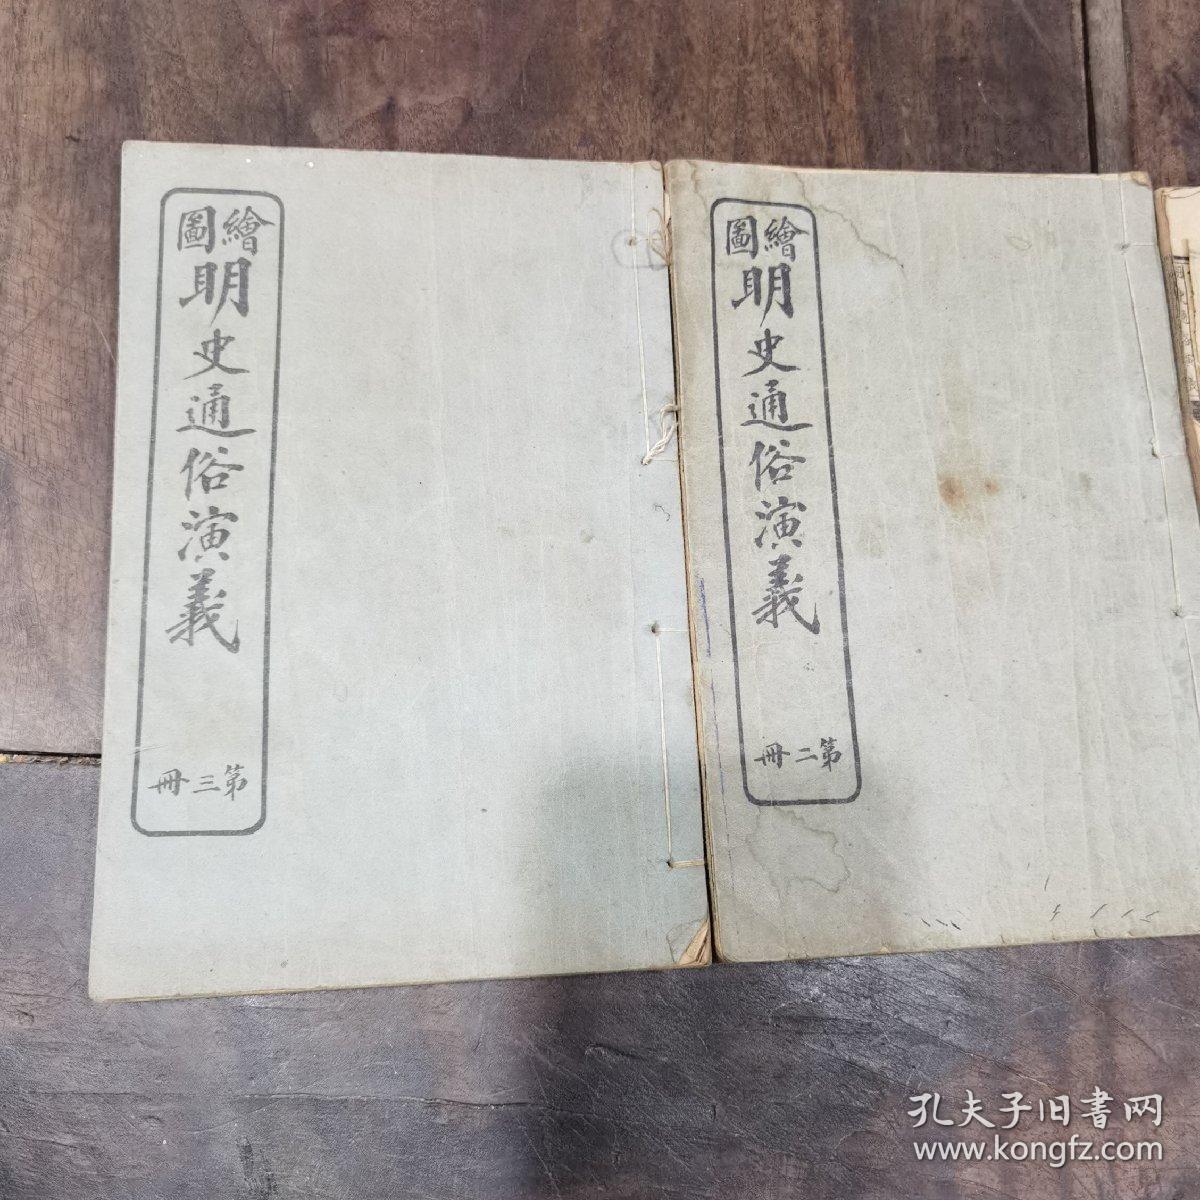 繪圖明史通俗演義
第三冊
繪圖明史通俗演義
第二冊
孔夫子旧書网
www.kongfz.com